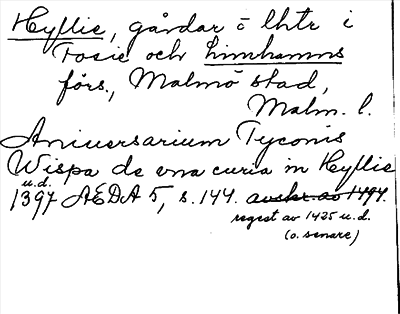 Hyllie, gårdar o lhtr i
Fosie och Limhamns
förs., Malmö stad,
Malm. l.
Aniversarium Tyconis
Wispa de una curia in Hyllie
u.d.
1397 AEDA 5, s. 144. avskr. av 1494.
regest av 1425 u.d.
(o. senare)